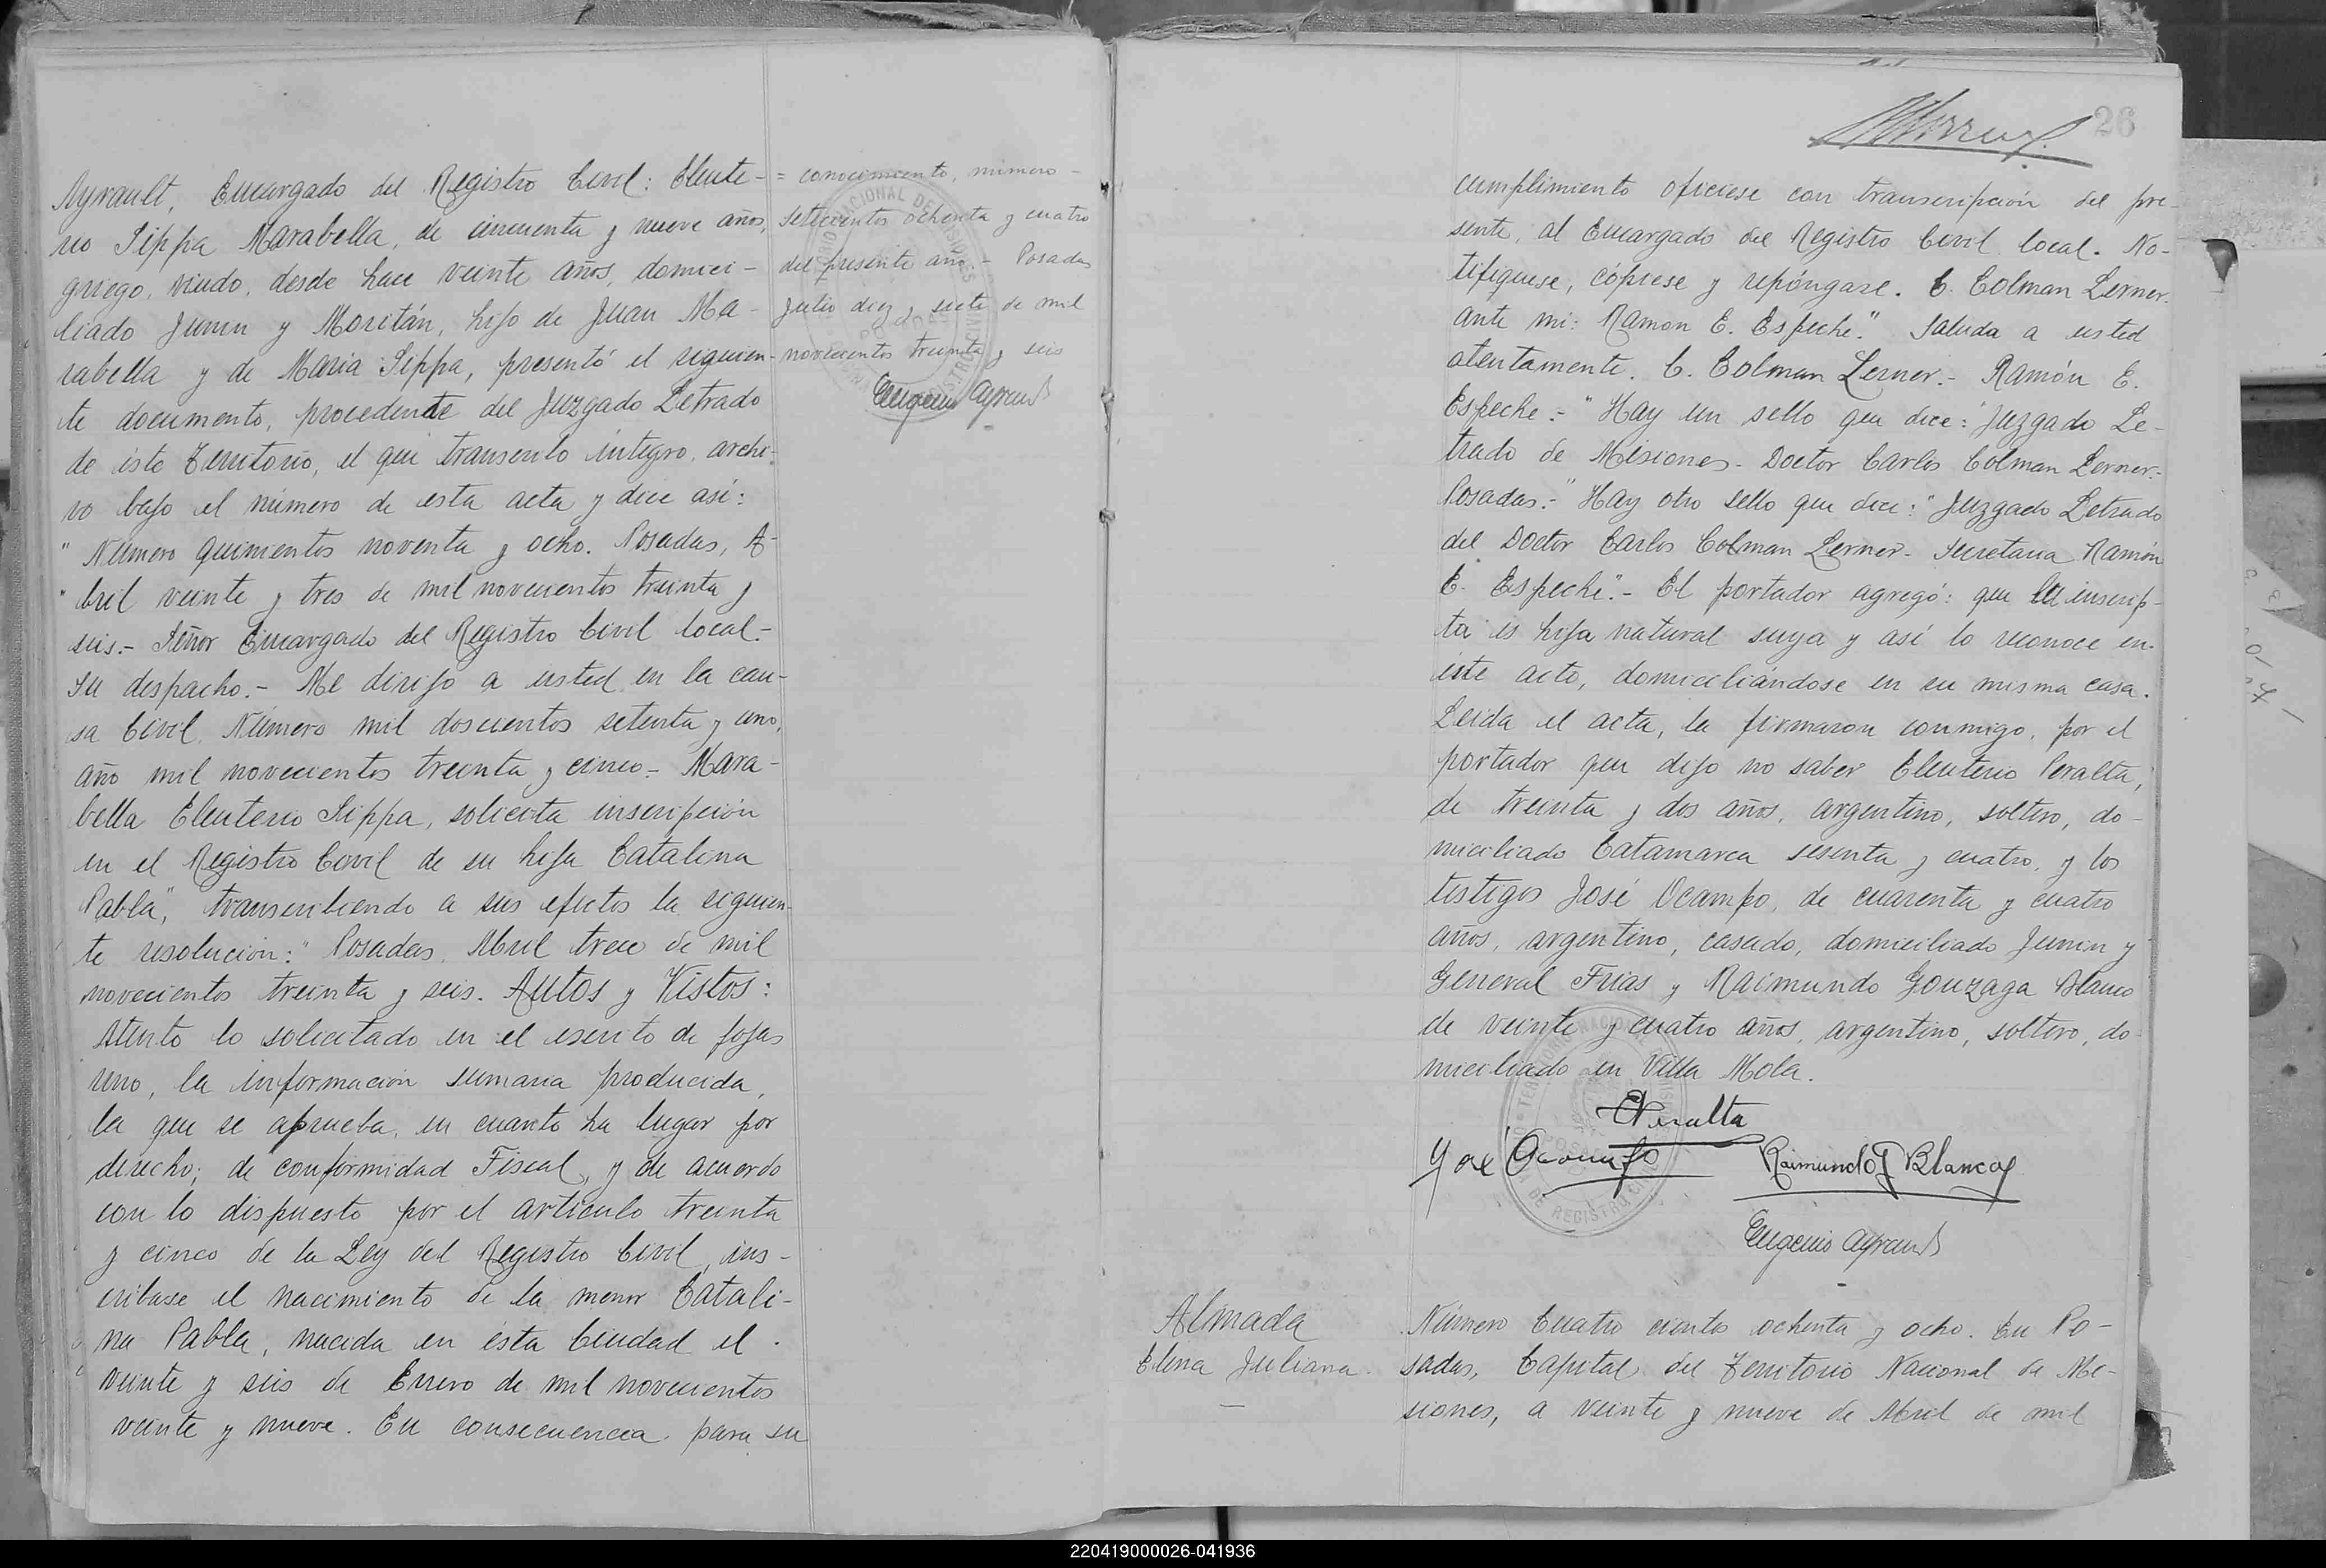 Ayrault, Encargado del Registro Civil: Eleute-
rio Sippa Marabella, de cincuenta y nueve años,
griego, viudo, desde hace veinte años, domici-
liado Junin y Moritán, hijo de Juan Ma-
rabella y de Maria Sippa, presentó el siguien-
te documento, procedente del Juzgado Letrado
de éste Territorio, el que transcribo íntegro, archi-
vo bajo el número de esta acta y dice así:
" Número quinientos noventa y ocho. Posadas, A-
" bril veinte y tres de mil novecientos treinta y
seis.- Señor Encargado del Registro Civil local.-
Su despacho.- Me dirijo a usted en la cau-
sa Civil, Número mil doscientos setenta y uno,
año mil novecientos treinta y cinco- Mara-
bella Eleuterio Sippa, solicita inscripción
en el Registro Civil de su hija Catalina
Pabla", transcribiendo a sus efectos la siguien-
te resolución: "Posadas, Abril trece de mil
novecientos treinta y seis. Autos y Vistos:
Atento lo solicitado en el escrito de fojas
uno, la información sumaria producida,
la que se aprueba, en cuanto ha lugar por
derecho; de conformidad Fiscal, y de acuerdo
con lo dispuesto por el artículo treinta
y cinco de la Ley del Registro Civil, ins-
críbase el nacimiento de la menor Catali-
na Pabla, nacida en ésta Ciudad el
veinte y seis de Enero de mil novecientos
veinte y nueve. En consecuencia, para su
= conocimiento, número -
setecientos ochenta y cuatro
del presente año.- Posadas
Julio diez y siete de mil
novecientos treinta y seis
Eugenio Ayrault
26
cumplimiento ofíciese con transcripción del pre-
sente, al Encargado del Registro Civil local. No-
tifíquese, cópiese y repóngase. C. Colman Lerner.
Ante mi: Ramon E. Espeche." Saluda a usted
atentamente. C. Colman Lerner.- Ramón E.
Espeche.-" Hay un sello que dice: "Juzgado Le-
trado de Misiones- Doctor Carlos Colman Lerner-
Posadas.-" Hay otro sello que dice: "Juzgado Letrado
del Doctor Carlos Colman Lerner- Secretaria Ramón
E. Espeche".- El portador agregó: que la inscrip-
ta es hija natural suya y así lo reconoce en
éste acto, domiciliándose en su misma casa.
Leída el acta, la firmaron conmigo, por el
portador que dijo no saber Eleuterio Peralta,
de treinta y dos años, argentino, soltero, do-
miciliado Catamarca sesenta y cuatro, y los
testigos José Ocampo, de cuarenta y cuatro
años, argentino, casado, domiciliado Junin y
General Frias y Raimundo Gonzaga Blanco
de veinte y cuatro años, argentino, soltero, do-
miciliado en Villa Mola.
E Peralta
José Ocampo Raimundo G Blanco
Eugenio Ayrault
Almada
Elena Juliana
Número Cuatro cientos ochenta y ocho. En Po-
sadas, Capital del Territorio Nacional de Mi-
siones, a veinte y nueve de Abril de mil
220419000026-041936